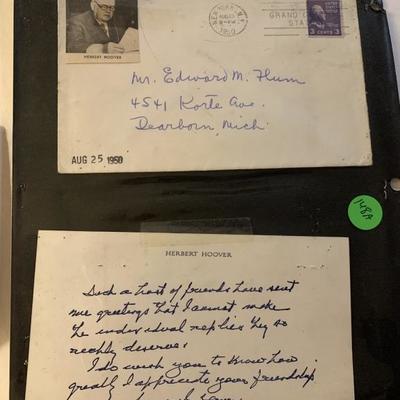 HERBERT HOOVER
NEW YORK, N.Y.
1950
GRAND C
STA
3 CENTS 3
Mr. Edward M. Flum
4541 Korte Ave.
Dearborn, Mich
AUG 25 1950
148A
HERBERT HOOVER
Such a host of friends have sent
me greetings that I cannot make
the individual replies they so
richly deserve.
I do wish you to know how
greatly I appreciate your friendship